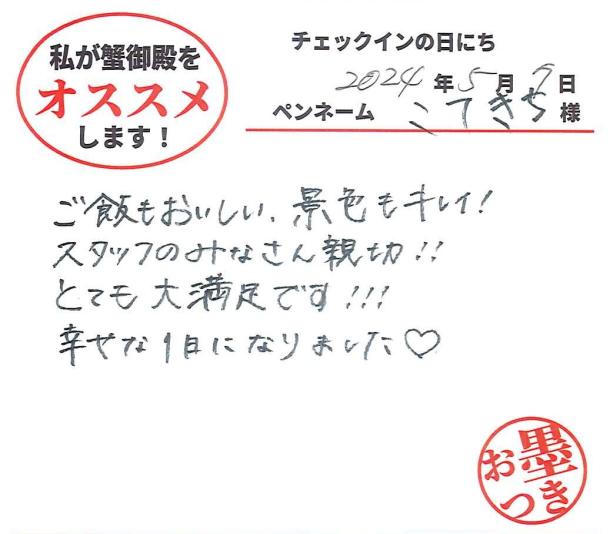 私が蟹御殿を
オススメ
します！
チェックインの日にち
2024年5月9日
ペンネーム こてきち 様
ご飯もおいしい、景色もキレイ！
スタッフのみなさん親切！！
とても大満足です！！！
幸せな1日になりました♡
お墨
つき